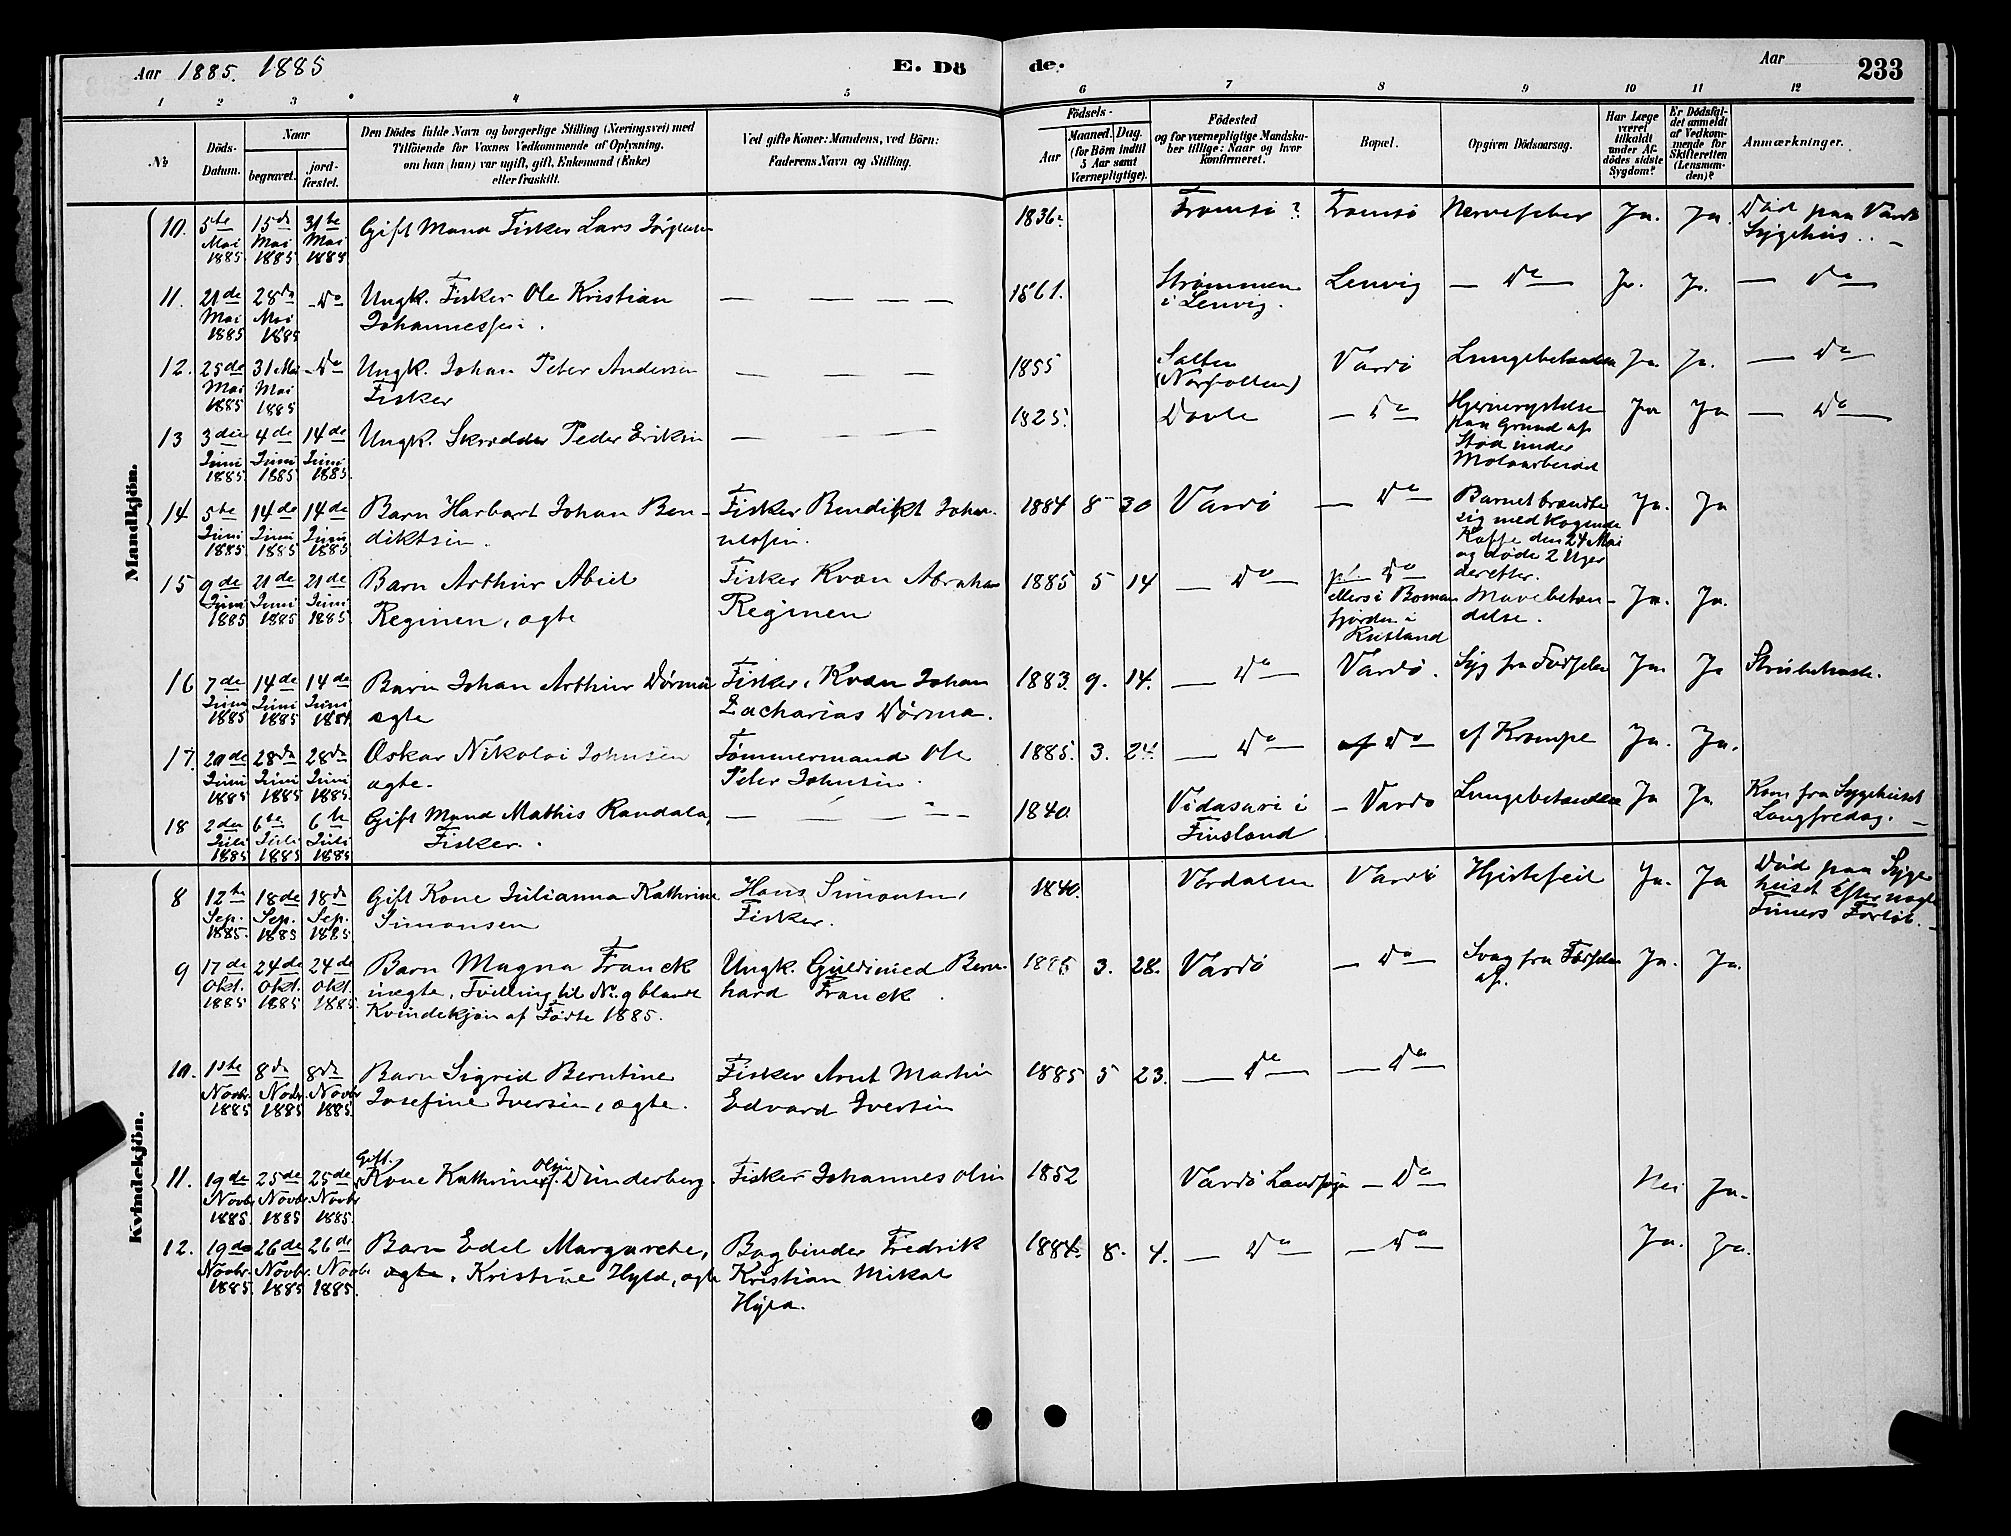 Aar 1885. 1885 E. Dö de. Aar 233
1 2 3 4 5 6 7 8 9 10 11 12
No
Döds-Datum.
Naar
begravet.
jord-fæstet.
Den Dödes fulde Navn og borgerlige Stilling (Næringsvei) med
Tilföiende for Voxnes Vedkommende af Oplysning,
om han (hun) var ugift, gift, Enkemand (Enke)
eller fraskilt.
Ved gifte Koner: Mandens, ved Börn:
Faderens Navn og Stilling.
Födsels-
Aar
Maaned. Dag.
(for Börn indtil
5 Aar samt
Værnepligtige).
Födested
og for værnepligtige Mandska-
ber tillige: Naar og hvor
konfirmeret.
Bopæl.
Opgiven Dödsaarsag.
Har Læge
været
tilkaldt
under Af-
dödes sidste
Sygdom?
Er Dödsfal-
det anmeldt
af Vedkom-
mende for
Skifteretten
(Lensman-
den)?
Anmærkninger.
Mandkjön.
10. 5te Mai 1885 15de Mai 1885 31te Mai 1885 Gift Mand Fisker Lars Jörgensen 1836. Tromsö? Tromsö Nervefeber Ja. Ja. Död paa Vardö
Sygehus.
11. 21de Mai 1885 28de Mai 1885 Do Ungk. Fisker Ole Kristian
Johannessen. 1861. Strömmen
i Lenvig. Lenvig Do Ja. Ja. Do
12. 25de Mai 1885 31 Mai 1885 Do Ungk. Johan Peter Andersen
Fisker 1855 Salten
(Norfolden) Vardö Lungebetændelse Ja. Ja. Do
13 3die Juni 1885 4de Juni 1885 14de Juni 1885. Ungk. Skrædder Peder Eriksen 1825. Dovre Do Hjernerystelse
paa Grund af
Stöd under
Moloarbeidet Ja Ja Do
14 5te Juni 1885 14de Juni 1885 14de Juni 1885 Barn Harbart Johan Ben-
diktsen. Fisker Bendikt Johan- 1884 8 30 Vardö Do Barnet brændte
sig med kogende
Kaffe den 24 Mai
og döde 2 Uger
derefter. Ja. Ja
15 9de Juni 1885 21de Juni 1885 21de Juni 1885. Barn Arthur Abiel
Reginen, ægte Fisker Kvæn Abraham
Reginen 1885 5 14 Do Do
ellers i Boman
fjorden i
Rusland Mavebetæn-
delse. Ja. Ja.
16 7de Juni 1885 14de Juni 1885 14de Juni Barn Johan Arthur Dörma
ægte Fisker, Kvæn Johan
Zacharias Dörma. 1883. 9. 14. Do Vardö. Syg fra Födselen Ja. Ja Strubehoste.
17. 20de Juni 1885 28de Juni 1885 28de Juni 1885. Oskar Nikolai Johnsen
ægte. Tömmermand Ole
Peter Johnsen. 1885. 3. 24. Do Do af Krampe Ja. Ja.
18 2den Juli 1885 6te Juli 1885 6te Juli 1885 Gift Mand Mathis Randala,
Fisker. 1840. Vidasari i
Finsland Vardö Lungebetændelse Ja Ja Kom fra Sygehuset
Langfredag.
Kvindekjön.
8 12te Sep. 1885. 18de Sep. 1885 18de Sep. 1885 Gift Kone Julianna Kathrine
Simonsen Hans Simonsen,
Fisker. 1840. Værdalen Vardö Hjertefeil Ja. Ja Död paa Syge
huset efter nogle
Timers Forlöb.
9 17de Okt. 1885 24de Okt. 1885 24de Okt. 1885 Barn Magna Franck
uægte, Tvilling til No. 9 blandt
Kvindekjön af Födte 1885. Ungk. Guldsmed Bern-
hard Franck. 3. 28. Vardö Do Svag fra Födselen
af. Ja. Ja.
10. 1ste Novbr. 1885 8de Novbr. 1885 8de Novbr 1885 Barn Sigrid Berntine
Josefine Iversen, ægte. Fisker Arnt Martin
Edvard Iversen 1885 5 23. Do Do
11. 19de Novbr. 1885. 25de Novbr. 1885 25de Novbr 1885. Gift
Kone Kathrine Olsen f. Dunderberg. Fisker Johannes Olsen 1852 Vardö Landsogn Do Nei Ja.
12. 19de Novbr. 1885. 26de Novbr. 1885 26de Novbr. 1885. Barn Edel Margarethe,
ægte, Kristine Hyld, ægte Bogbinder Fredrik
Kristian Mikal
Hyld. 1884. 8. 4. Do Do Ja. Ja.